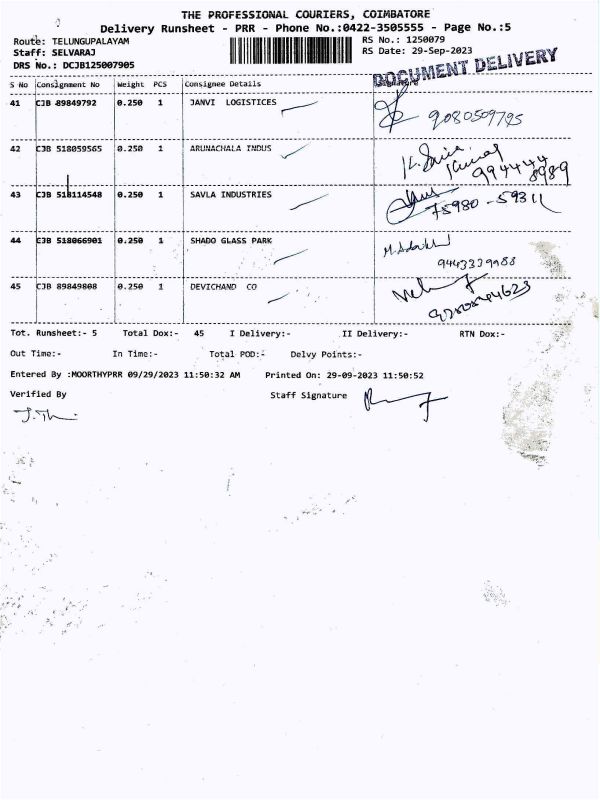 THE PROFESSIONAL COURIERS, COIMBATORE
Delivery Runsheet - PRR - Phone No.:0422-3505555 - Page No.:5
Route: TELUNGUPALAYAM RS No.: 1250079
Staff: SELVARAJ RS Date: 29-Sep-2023
DRS No.: DCJB125007905
DOCUMENT DELIVERY
S No Consignment No Weight PCS Consignee Details Signature
41 CJB 89849792 0.250 1 JANVI LOGISTICES
9080509795
42 CJB 518059565 0.250 1 ARUNACHALA INDUS
994444
8989
43 CJB 518114548 0.250 1 SAVLA INDUSTRIES
75980 - 59311
44 CJB 518066901 0.250 1 SHADO GLASS PARK
9443339988
45 CJB 89849808 0.250 1 DEVICHAND CO
Tot. Runsheet:- 5 Total Dox:- 45 I Delivery:- II Delivery:- RTN Dox:-
Out Time:- In Time:- Total POD:- Delvy Points:-
Entered By :MOORTHYPRR 09/29/2023 11:50:32 AM Printed On: 29-09-2023 11:50:52
Verified By Staff Signature